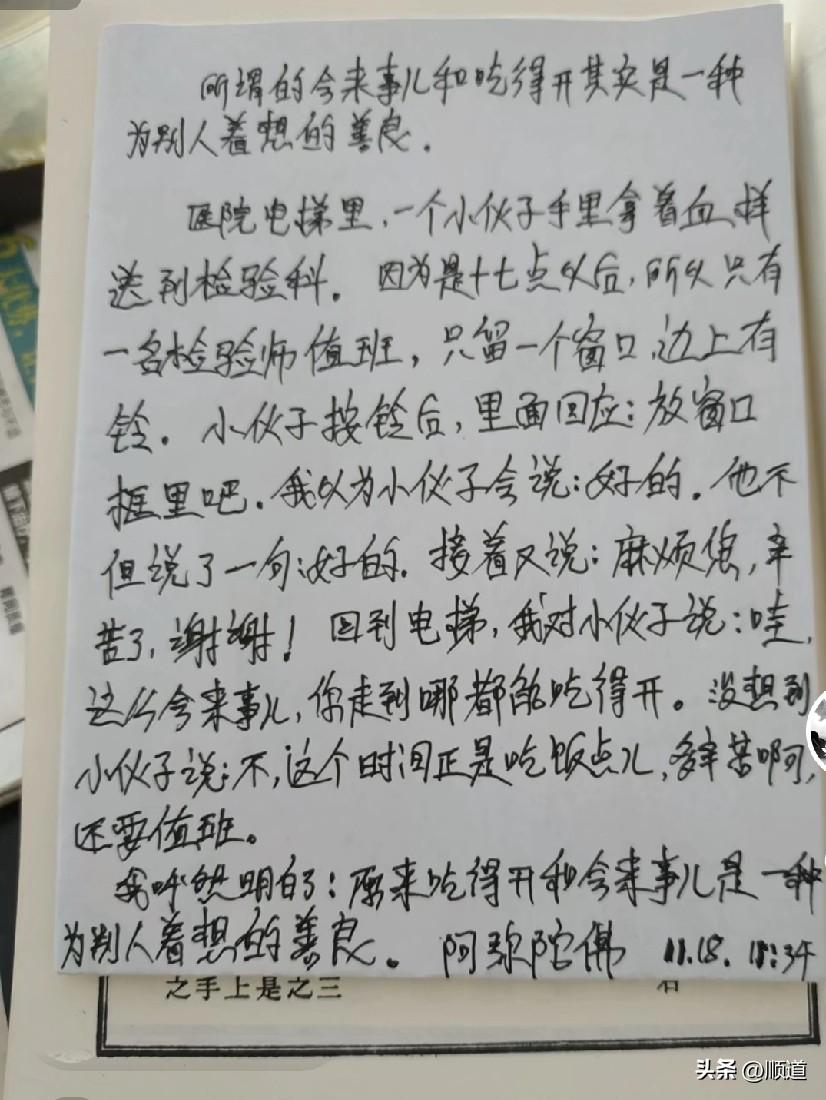 所谓的会来事儿和吃得开其实是一种
为别人着想的善良.
医院电梯里,一个小伙子手里拿着血样
送到检验科。因为是十七点以后,所以只有
一名检验师值班,只留一个窗口,边上有
铃。小伙子按铃后,里面回应:放窗口
框里吧.我以为小伙子会说:好的.他不
但说了一句:好的.接着又说:麻烦您,辛
苦了,谢谢!回到电梯,我对小伙子说:哇,
这么会来事儿,你走到哪都能吃得开。没想到
小伙子说:不,这个时间正是吃饭点儿,多辛苦啊,
还要值班。
我呼然明白了:原来吃得开和会来事儿是一种
为别人着想的善良。阿弥陀佛 11.18.
之手上是之三
头条 @顺道